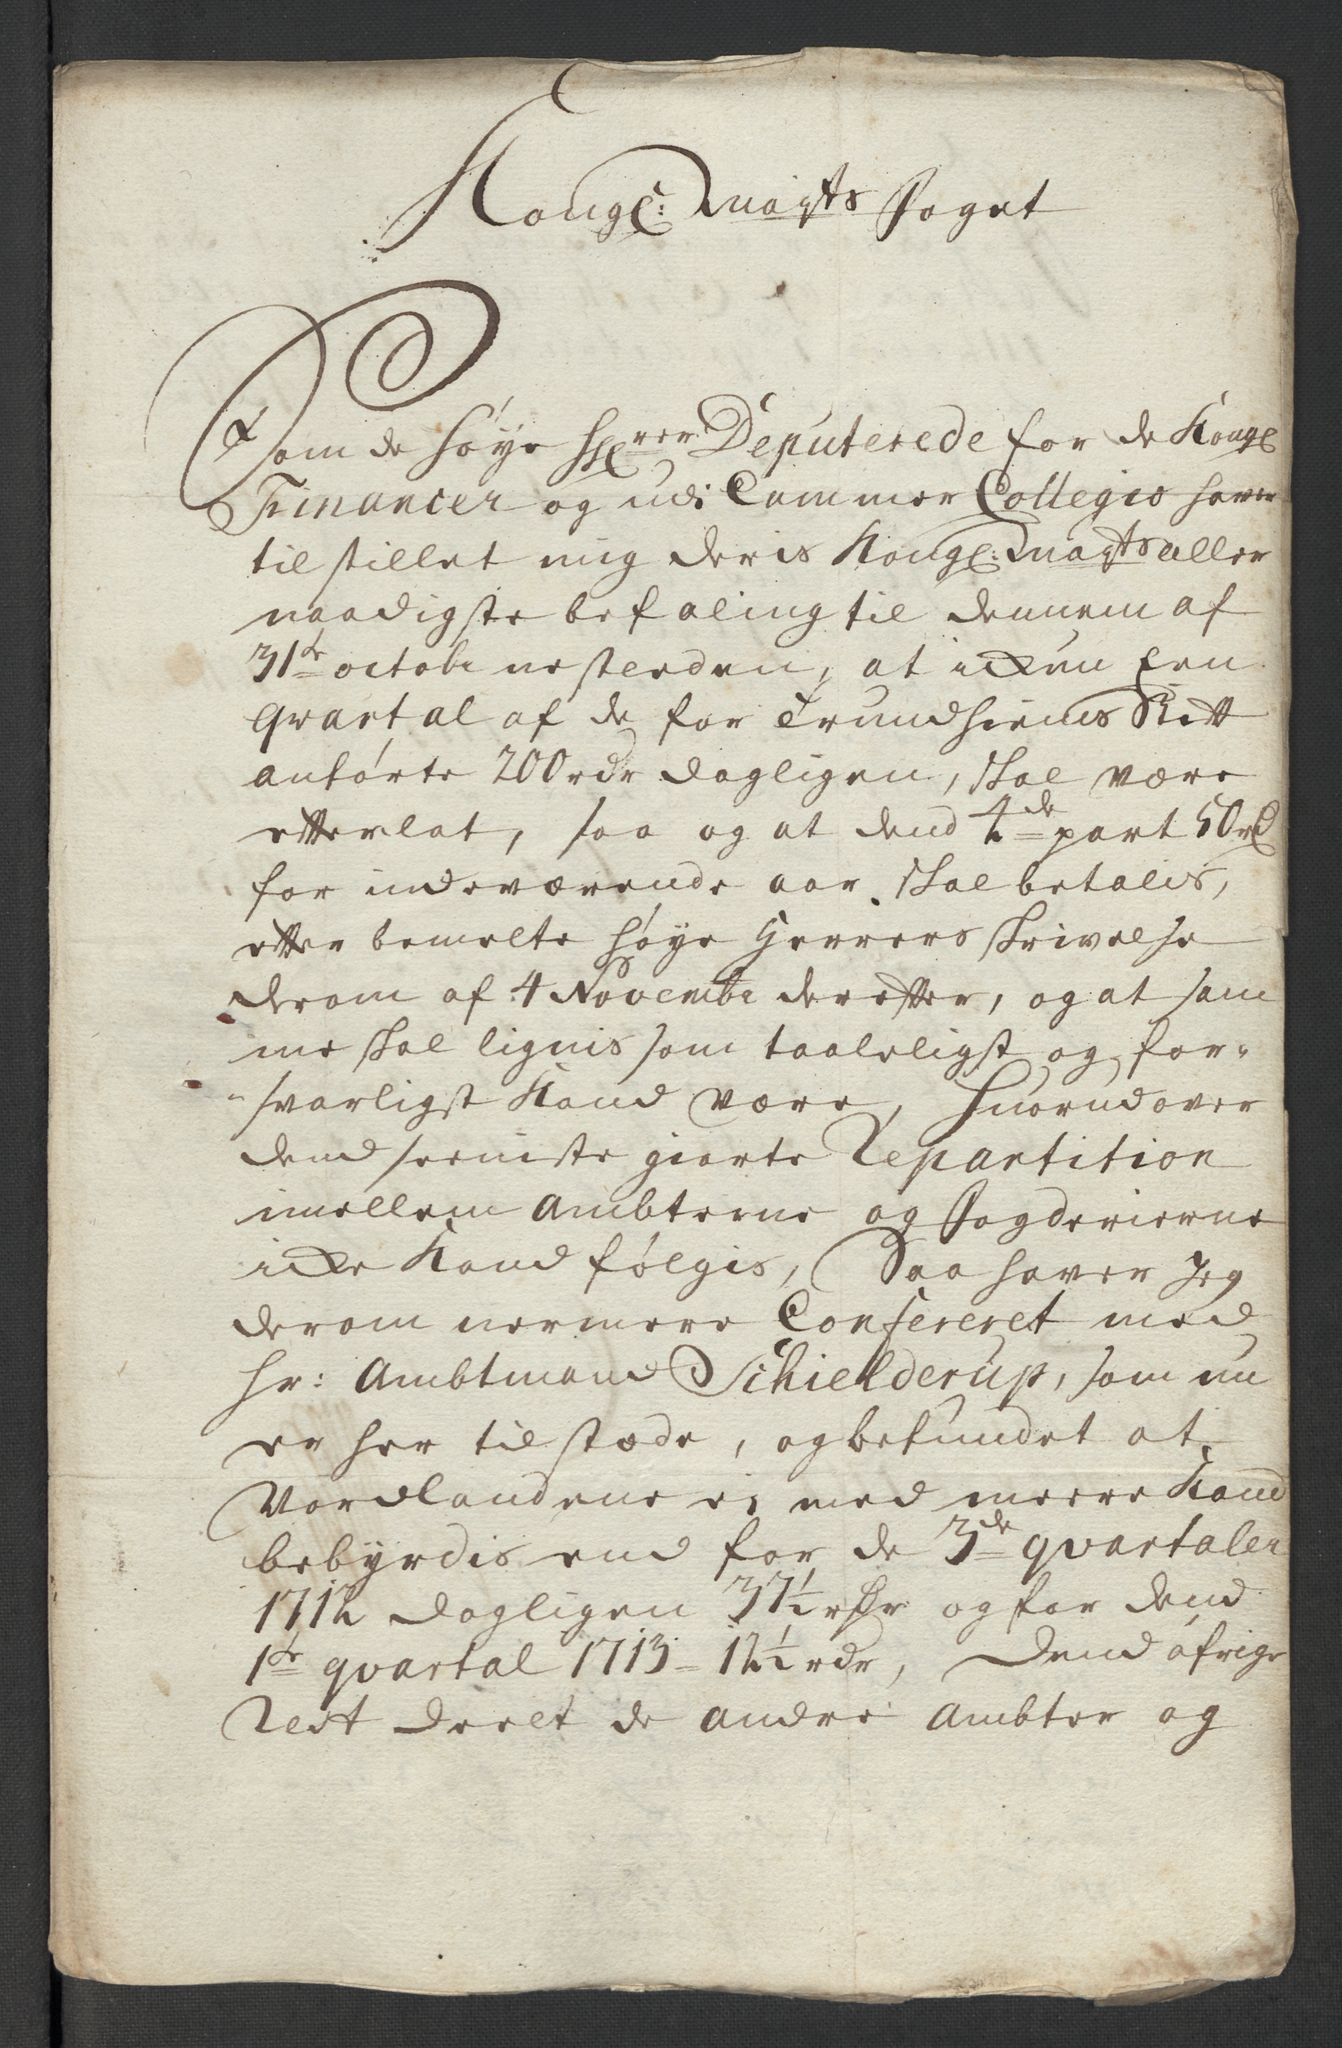 Kongl: Mayts Foget
Som de høye H:rer Deputerede for de Kongl
Financer og udi Cammer Collegio haver
tilstillet mig deris Kongl: Mayts aller
naadigste befaling til dennem af
31te octobr nestleden, at ickun Een
qvartal af de for Trundhiems Stift
anførte 200 rdr dagligen, skal være
efterlat, saa og at dend 4de part 50 rd
for indeværende aar skal betalis,
efter bemelte høye Herrers skrivelse
derom af 4 Novembr derefter, og at sam
me skal lignis som taaleligst og for-
svarligst Kand være, Huorudover
dend seeniste giorte Repartition
imellem Ambterne og Fogderierne
icke Kand følgis, Saa haver Jeg
derom nermere Confereret med
Hr: Ambtmand Schielderup, som nu
er her tilstæde, og befundet at
Nordlandene ei med meere Kand
bebyrdis end for de 3de qvartaler
1712 dagligen 37½ rdr og for dend
1te qvartal 1713 - 12½ rdr, Dend øfrige
Rest deelt de andre Ambter og